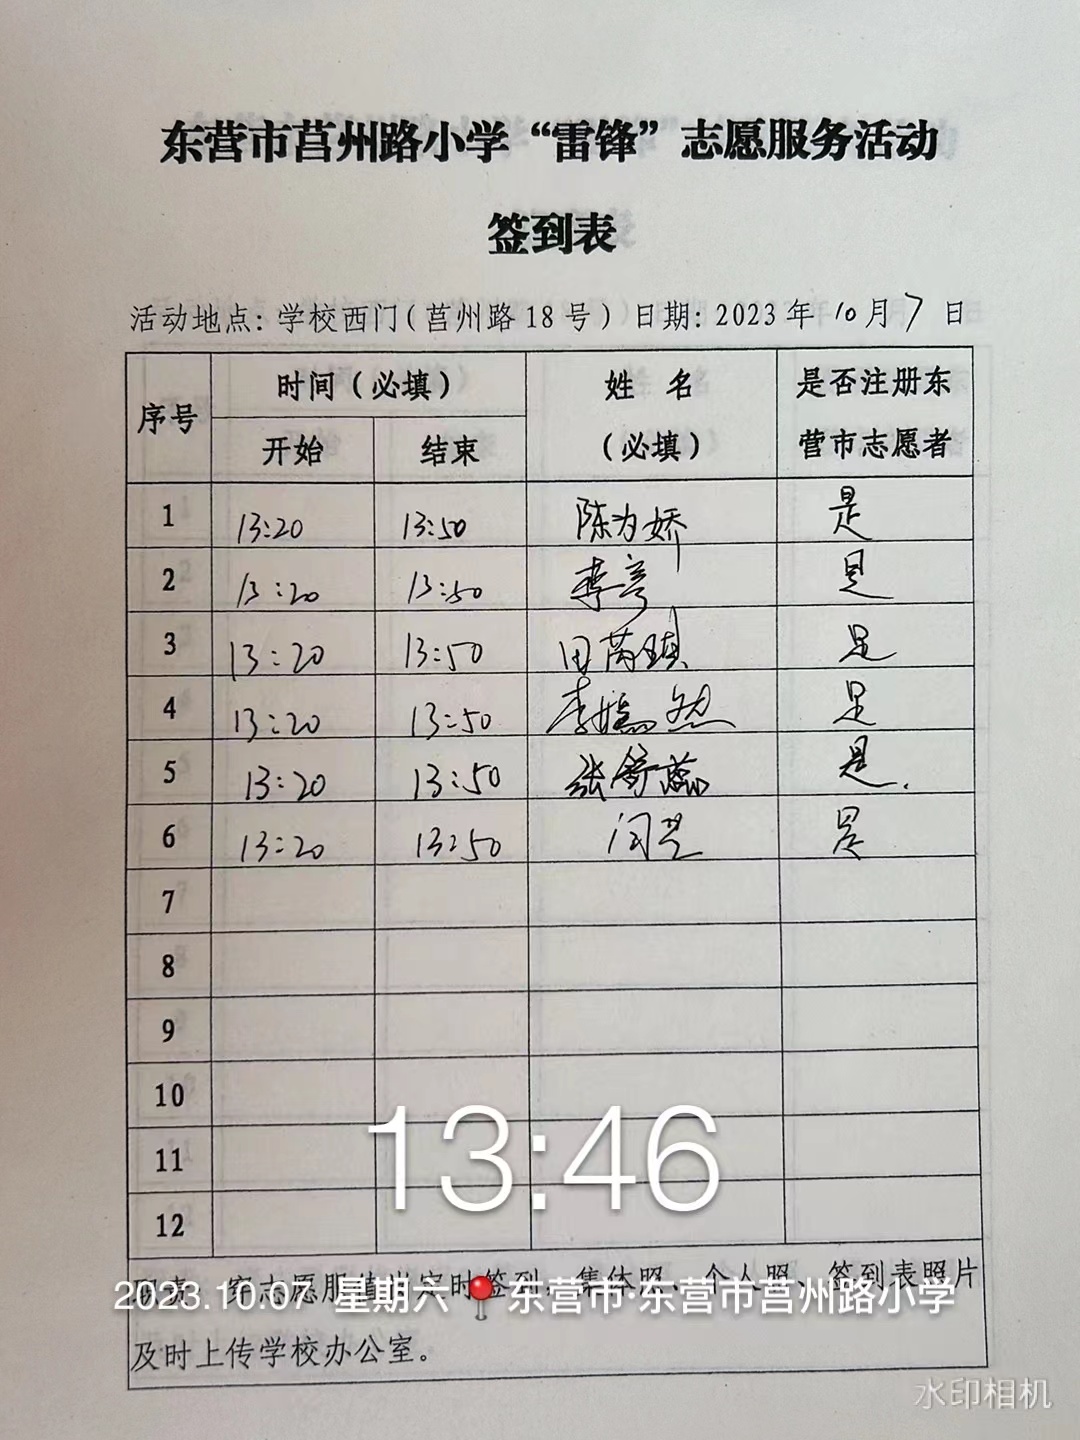 东营市莒州路小学“雷锋”志愿服务活动
签到表
活动地点:学校西门(莒州路18号)日期:2023年10月7日
序号 时间(必填) 姓 名 (必填) 是否注册东营市志愿者
开始 结束
1 13:20 13:50 陈为娇 是
2 13:20 13:50 李彦 是
3 13:20 13:50 田芮瑱 是
4 13:20 13:50 李嫣然 是
5 13:20 13:50 张舒蕊 是.
6 13:20 13:50 闫芝 是
7
8
9
10
11
12
13:46
穿志愿服 定时签到、集体照、个人照、签到表照片
及时上传学校办公室。
2023.10.07 星期六 东营市·东营市莒州路小学
水印相机